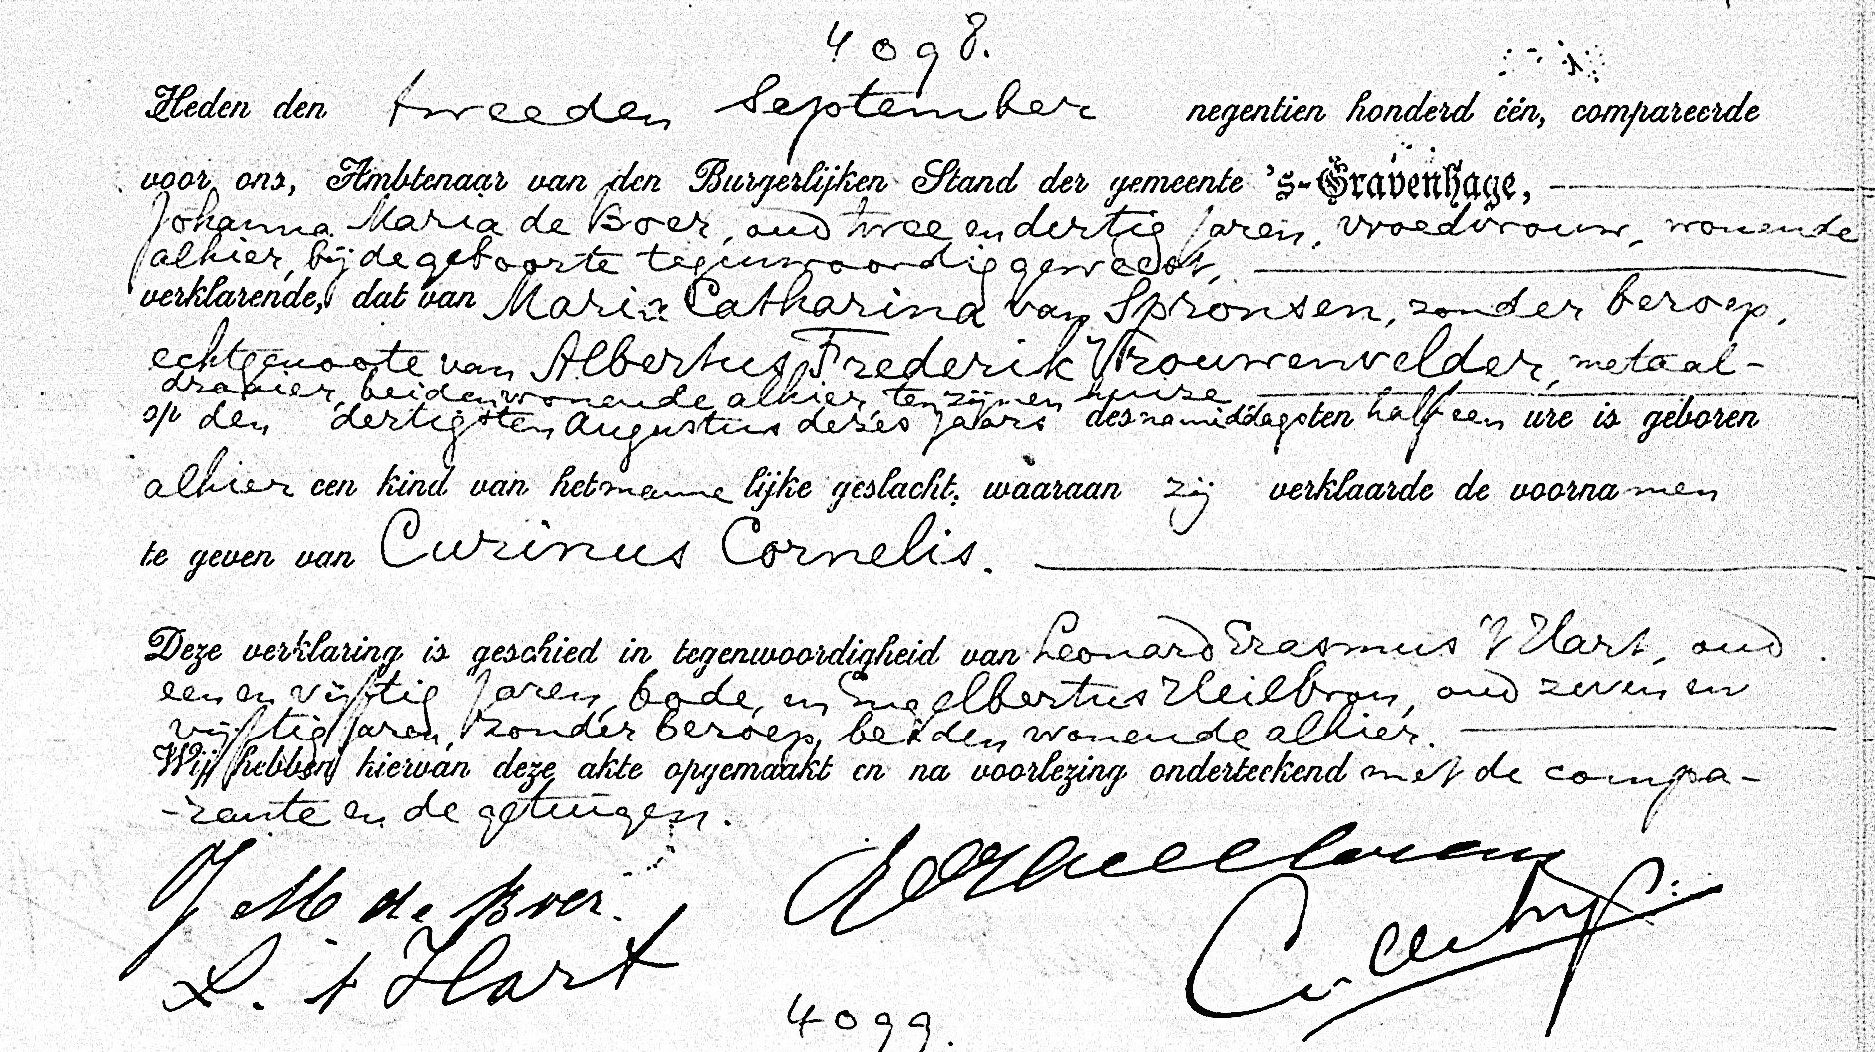 4098.
Heden den tweeden September negentien honderd één, compareerde
voor ons, Ambtenaar van den Burgerlijken Stand der gemeente 's-Gravenhage,
Johanna Maria de Boer, oud twee en dertig jaren, vroedvrouw, wonende
alhier, bij de geboorte tegenwoordig geweest,
verklarende, dat van Maria Catharina van Spronsen, zonder beroep,
echtgenoote van Albertus Frederik Vrouwenvelder, metaal-
draaier, beiden wonende alhier, ten zijnen huize
op den dertigsten Augustus dezes jaars des namiddags ten half een ure is geboren
alhier een kind van het mannelijke geslacht, waaraan zij verklaarde de voornamen
te geven van Curinus Cornelis.
Deze verklaring is geschied in tegenwoordigheid van Leonard Erasmus 't Hart, oud
een en vijftig jaren, bode, en Engelbertus Heilbron, oud zeven en
vijftig jaren, zonder beroep, beiden wonende alhier.
Wij hebben hiervan deze akte opgemaakt en na voorlezing onderteekend met de compa-
-rante en de getuigen.
J M de Boer.
L. 't Hart
4099.